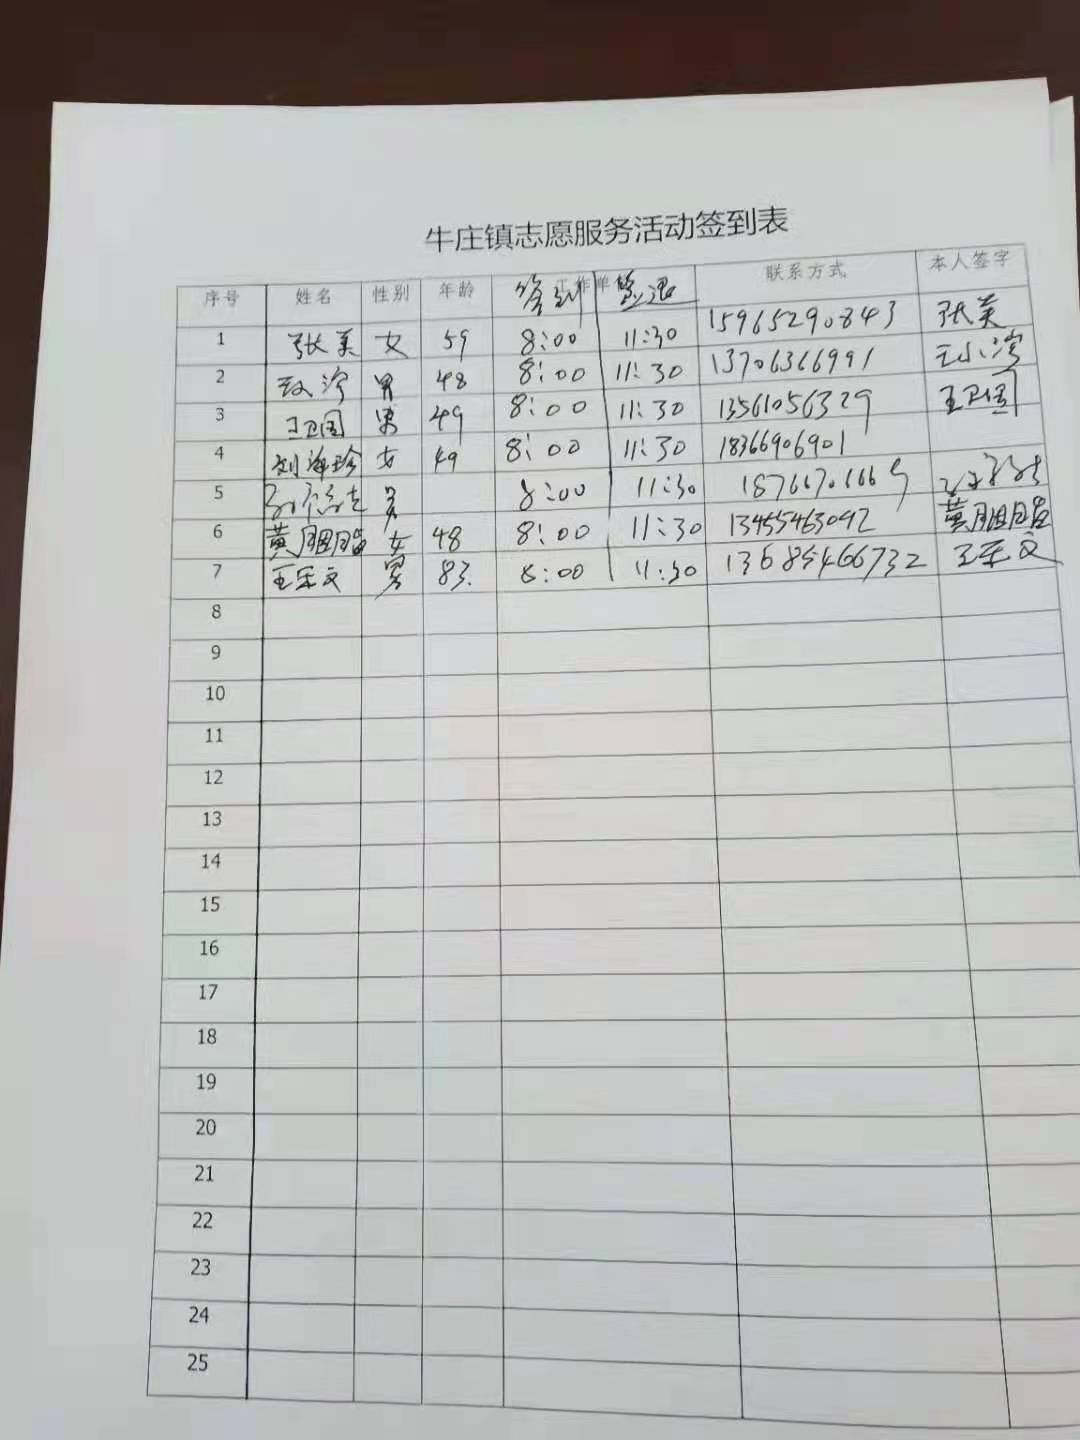 牛庄镇志愿服务活动签到表
序号 姓名 性别 年龄 工作单 签到 签退 联系方式 本人签字
1 张美 女 59 8:00 11:30 15965290843 张美
2 男 48 8:00 11:30 13706366991 王小湾
3 王卫国 男 49 8:00 11:30 13561056329 王卫国
4 刘海珍 女 49 8:00 11:30 18366906901
5 男 8:00 11:30 18766706669
6 黄胭脂 女 48 8:00 11:30 13455463092 黄胭脂
7 王乐文 男 83 8:00 11:30 13685466732 王乐文
8
9
10
11
12
13
14
15
16
17
18
19
20
21
22
23
24
25